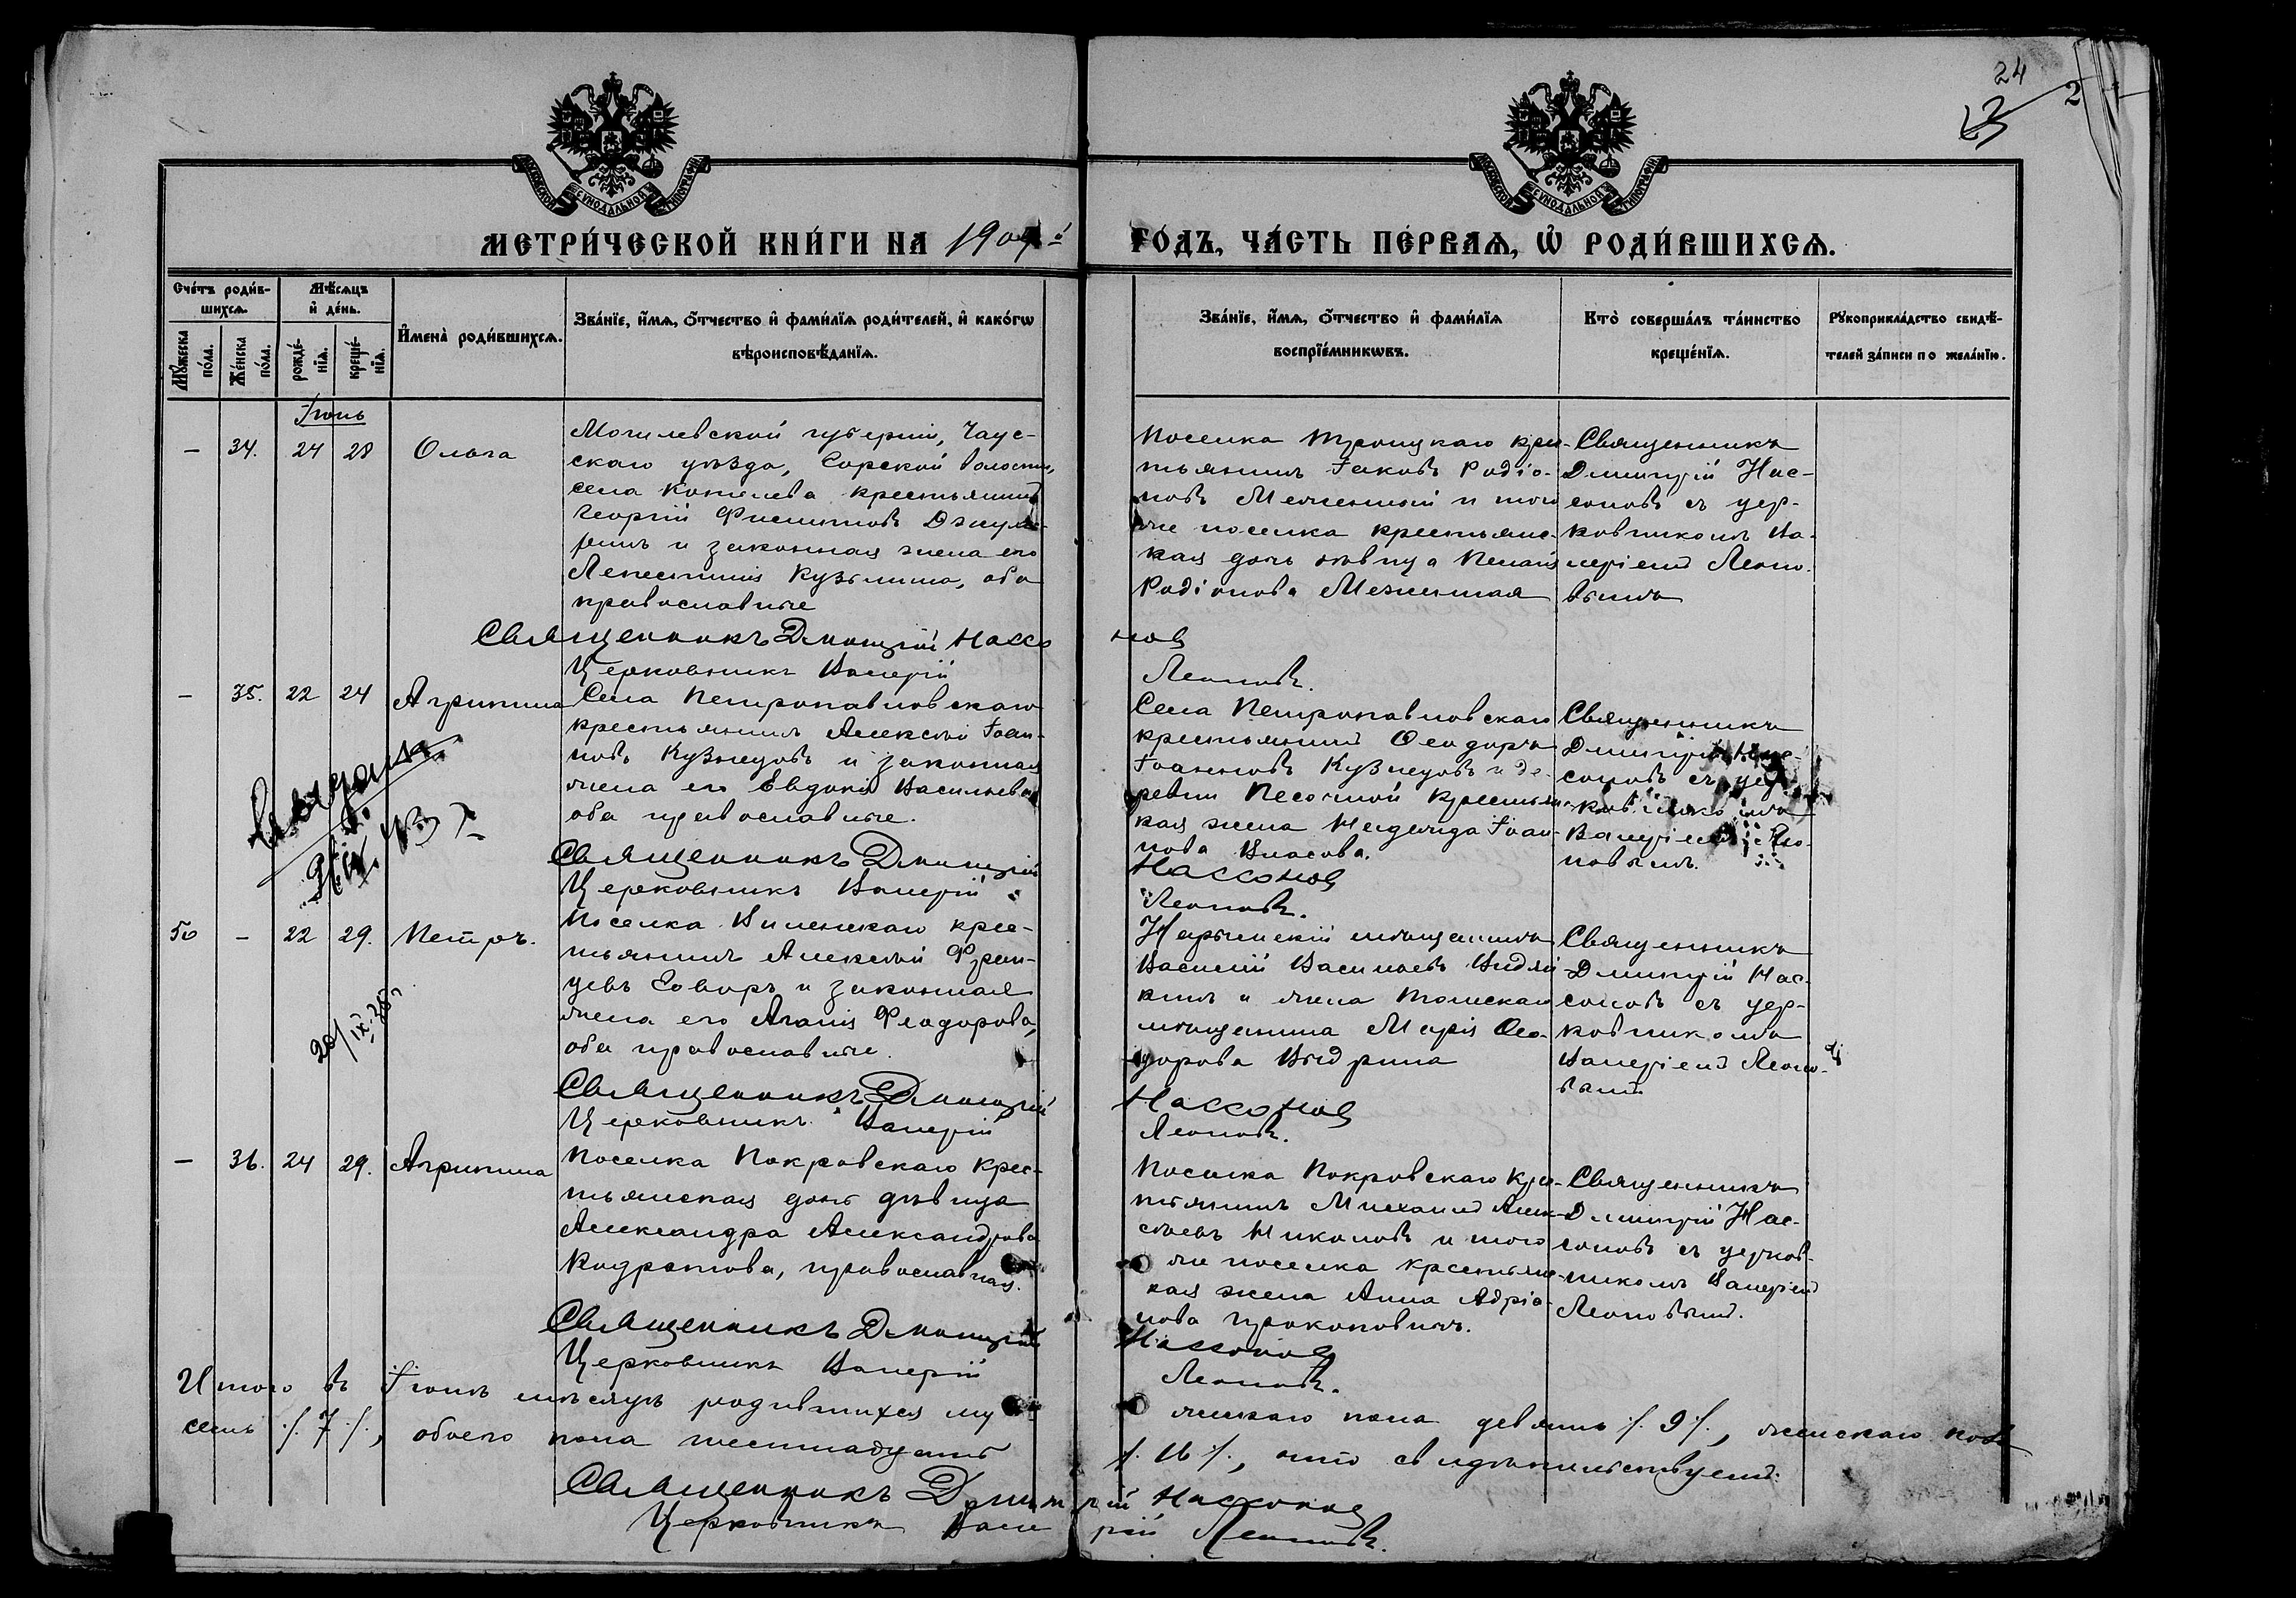 24
23
2
МОСКОВСКОЙ СѴНОДАЛЬНОЙ ТИПОГРАФІИ
МОСКОВСКОЙ СѴНОДАЛЬНОЙ ТИПОГРАФІИ
МЕТРИ́ЧЕСКОЙ КНИ́ГИ НА 1909й
ГО́ДЪ, ЧА́СТЬ ПЕ́РВАѦ, Ѡ҆ РОДИ́ВШИХСѦ.
Сче́тъ роди́в-
шихсѧ.
Мѣ́сѧцъ
и҆ де́нь.
Мꙋ́жеска
по́ла.
Же́нска
по́ла.
рожде́-
нїѧ.
креще́-
нїѧ.
И҆мена̀ роди́вшихсѧ.
Зва́нїе, и҆́мѧ, ѻ҆́тчество и҆ фами́лїѧ роди́телей, и҆ како́гѡ
вѣроисповѣ́данїѧ.
Зва́нїе, и҆́мѧ, ѻ҆́тчество и҆ фами́лїѧ
воспрїе́мникѡвъ.
Кто̀ соверша́лъ та́инство
креще́нїѧ.
Рꙋкоприкла́дство свидѣ́-
телей за́писи по жела́нїю.
Іюнь
— 34. 24 28 Ольга
Могилевской губерніи, Чаус-
скаго уѣзда, Горской волости,
села крестьянинъ
Георгій
и законная жена его
Кузьмина, оба
православные
Поселка Троицкаго крес-
тьянинъ Іаковъ Родіо-
новъ и того
же поселка крестьянс-
кая дочь дѣвица
Родіонова
Священникъ
Димитрій Нас-
соновъ съ цер-
ковникомъ Ва-
леріемъ Леоно-
вымъ
Священникъ Димитрій Нассо
нов
Церковникъ Валерій
Леоновъ.
— 35. 22 24 Агрипина
Села Петропавловскаго
крестьянинъ Алексѣй Іоан-
новъ Кузнецовъ и законная
жена его Евдокія Васильева
оба православные.
Села Петропавловскаго
крестьянинъ Ѳеодоръ
Іоанновъ Кузнецовъ и де-
ревни Песочной крестьянс-
кая жена Надежда Іоан-
нова Власова.
Священникъ
Димитрій Нас-
соновъ съ цер-
ковникомъ
Валеріемъ Лео-
новымъ.
Священникъ Димитрій
Нассонов
Церковникъ Валерій
Леоновъ.
50 — 22 29. Петръ.
20/IX
Поселка Виленскаго крес-
тьянинъ Алексѣй Фран-
цевъ и законная
жена его Агапія Феодорова,
оба православные.
Нарымскій мѣщанинъ
Василій Васильевъ
и жена Томскаго
мѣщанина Марія Ѳео-
дорова Выдрина
Священникъ
Димитрій Нас-
соновъ съ цер-
ковникомъ
Валеріемъ Леоно-
вымъ
Священникъ Димитрій
Нассонов
Церковникъ Валерій
Леоновъ.
— 36. 24 29. Агрипина
Поселка Покровскаго крес-
тьянская дочь дѣвица
Александра Александрова
Кодратова, православная.
Поселка Покровскаго крес-
тьянинъ Михаилъ Алек-
сѣевъ Никоновъ и того
же поселка крестьянс-
кая жена Анна Адріа-
нова Прокоповичъ.
Священникъ
Димитрій Нас-
соновъ съ церков-
никомъ Валеріемъ
Леоновымъ.
Священникъ Димитрій
Нассонов
Церковникъ Валерій
Леоновъ.
Итого въ Іюнѣ мѣсяцѣ родившихся му
жескаго пола девять /. 9 /., женскаго пола
семь /. 7 /., обоего пола шестнадцать
/. 16 /., что свидѣтельствуемъ.
Священникъ Димитрій Нассонов
Церковникъ Валерій Леоновъ.